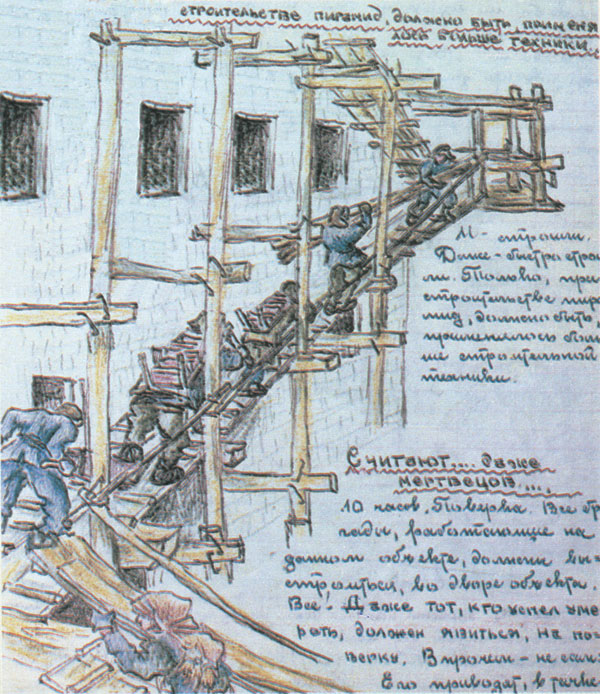 строительстве пирамид, должно быть, применя
лось больше техники...
И - строили.
Даже - быстро строи
ли. Только, при
строительстве пира
мид, должно быть,
применялось боль
ше строительной
техники.
Считают... даже
мертвецов...
10 часов. Поверка. Все бри
гады, работающие на
данном объекте, должны вы-
строиться, во дворе объекта.
Все. Даже тот, кто успел уме
реть, должен явиться, на по-
верку. Впрочем - не сам:
Его приводят, в тачке